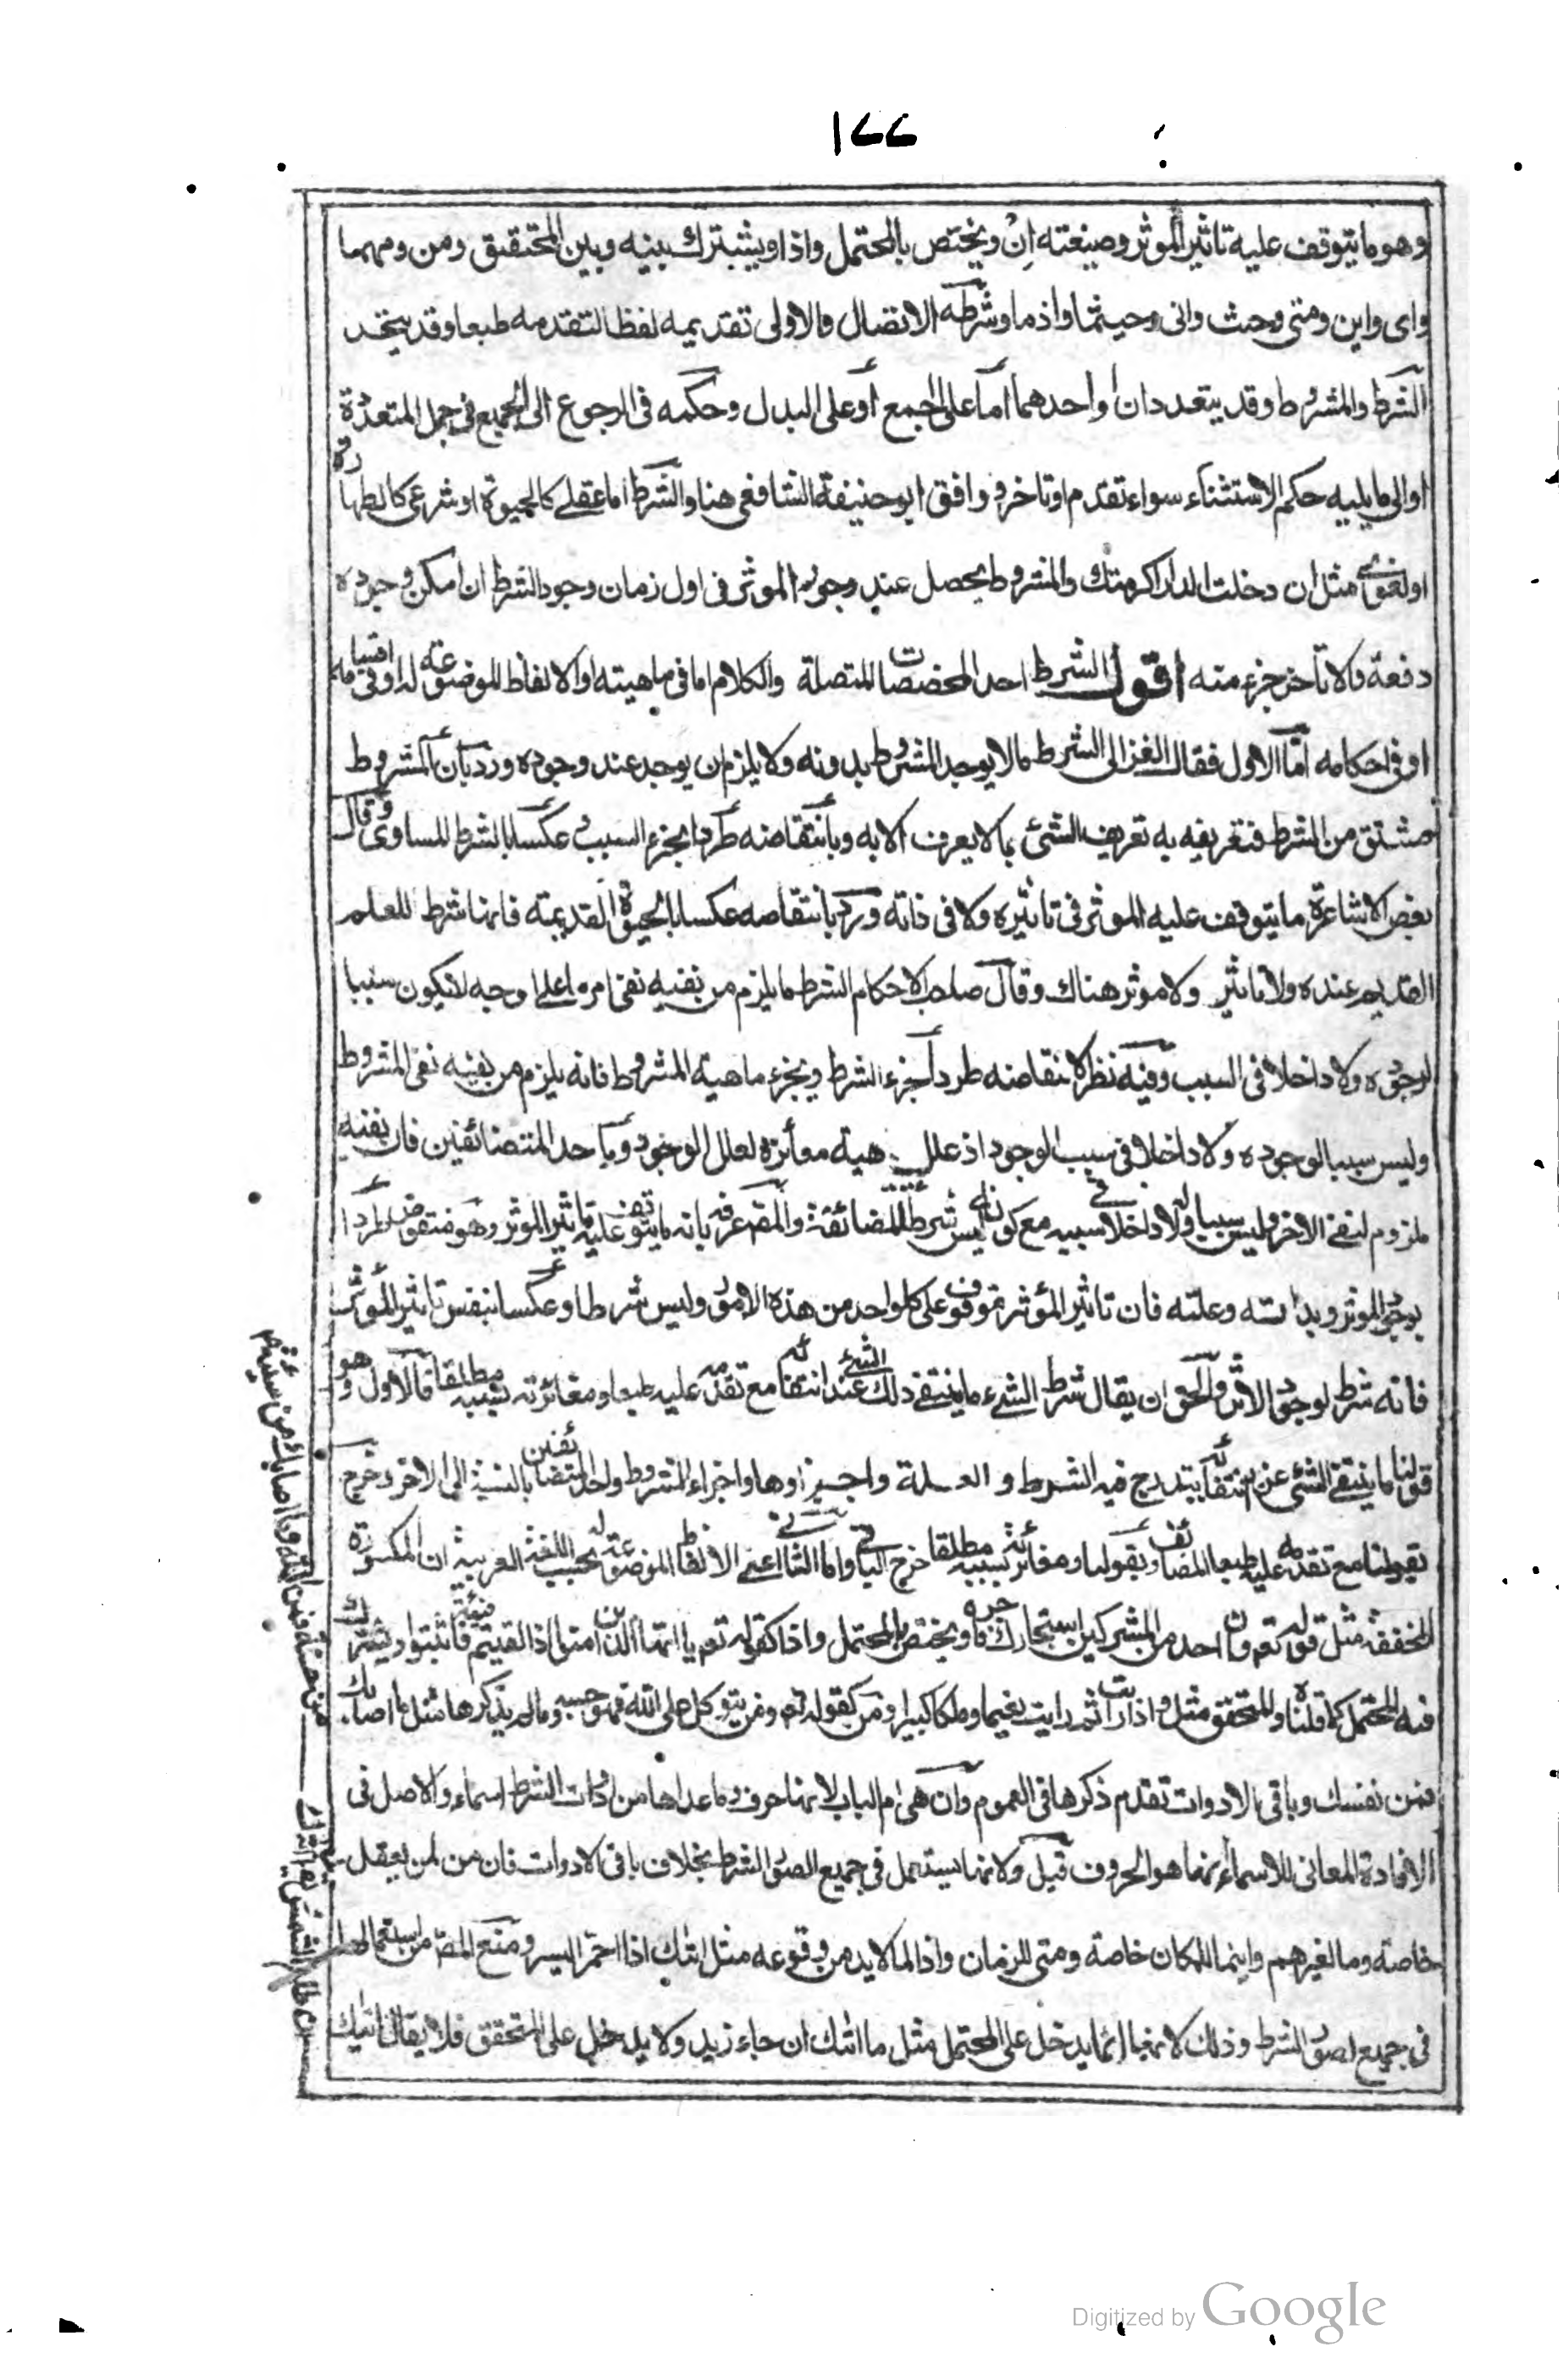 ١٦٦
وهو ما يتوقف عليه تاثير الموثر وصيغته اِنْ ويختص بالمحتمل واذا ويشترك بينه وبين المتحقيق ومن ومهما
واى واين ومتى وحيث وانى وحيثما واذ ما وشرطه الاتصال والاولى تقديمه لفظا لتقدمه طبعا وقد يتحد
الشرط والمشروط وقد يتعددان أو احدهما أما على الجمع أو على البدل وحكمه فى الرجوع الى الجميع فى جمل المتعددة
او الى ما يليه حكم الاستثناء سواء تقدم او تاخر ووافق ابو حنيفة الشافعى هنا والشرط اما عقلے كالحيوة او شرعى كالطهارة
او لغوى مثل ان دخلت الدار اكرمتك والمشروط يحصل عند وجود الموثر فى اول زمان وجود الشرط ان امكن وجوده
دفعة والا تأخر جزء منه اقول الشرط احد المخصصات المتصلة والكلام اما فى ماهيته او الالفاظ الموضوعة له او فى اقسامه
او فى احكامه امّا الاول فقال الغزالى الشرط ما لا يوجد المشروط بدونه ولا يلزم ان يوجد عند وجوده وردّ بأن المشروط
مشتق من الشرط فتعريفه به تعريف الشئ بما لا يعرف الا به وبأنتقاضه طردا بجزء السبب وعكسا بالشرط المساوى وقال
بعض الاشاعرة ما يتوقف عليه الموثر فى تاثيره ولا فى ذاته وردّ بانتقاضه عكسا بالحيوة القديمة فانها شرط للعلم
القديم عنده ولا تاثير ولا موثر هناك وقال صاحب الاحكام الشرط ما يلزم من نفيه نفى امر ما على وجه لا يكون سببا
لوجوده ولا داخلا فى السبب وفيه نظر لانتقاضه طرداً بجزء الشرط وبجزء ماهية المشروط فانه يلزم من نفيه نفى المشروط
وليس سببا لوجوده ولا داخلا فى سبب الوجود اذ علل هية مغائرة لعلل الوجود وبأحد المتضائفين فان نفيه
ملزوم لنفى الاخر وليس سببا له ولا داخلا فى سببه مع كونه ليس شرطا للمضائفة والمصّ عرفه بانه ما يتوقف عليه تاثير الموثر وهو منتقض طردا
بوجود الموثر وبذاته وعلته فان تاثير المؤثر موقوف على كل واحد من هذه الامور وليس شرطا وعكسا بنفس تاثير المؤثر
فانه شرط لوجود الاثر والحق ان يقال شرط الشئ ما ينتفے ذلك الشئ عند انتفائه مع تقدمه عليه طبعا ومغائرته لسببه مطلقا فالاول وهو
قولنا ما ينتفے الشئ عن انتفائه يندرج فيه الشرط والعلة واجزاوها واجزاء المشروط واحد المتضائفين بالنسبة الى الاخر وخرج
بقولنا مع تقدمه عليه طبعا المضائف وبقولنا ومغائرته لسببه مطلقا خرج الباقى واما الثانى اعنے الالفاظ الموضوعة له بحسب اللغة العربية ان المكسورة
المخففة مثل قوله تعم وان احد من المشركين استجارك فاجره ويختص بالمحتمل واذا كقوله تعم يا ايها الذين امنوا اذا لقيتم فئة فاثبتوا ويشترك
فيه المحتمل كما قلناه والمتحقق مثل واذا رايت ثم رايت نعيما وملكا كبيرا ومن كقوله تعم ومن يتوكل على الله فهو حسبه وما لم يذكرها مثل ما اصابك
فمن نفسك وباقى الادوات تقدم ذكرها فى العموم وان هى ام الباب لانها حرف وما عداها من ادوات الشرط اسماء والاصل فى
الافادة المعانى للاسماء انما هو الحروف قيل ولانها تستعمل فى جميع الصور الشرط بخلاف باقى الادوات فان من لمن يعقل
خاصة وما لغيرهم واينما للمكان خاصة ومتى للزمان واذا لما لابد من وقوعه مثل اتيك اذا احمرّ البسر ومنع المصّ من استعمالها
فى جميع صور الشرط وذلك لانها انما يدخل على المحتمل مثل ما اتيك ان جاء زيد ولا يدخل على المتحقق فلا يقال اتيك
من حسنة فمن الله وما اصابك من سيئة
ان طلع الشمس
Digitized by Google